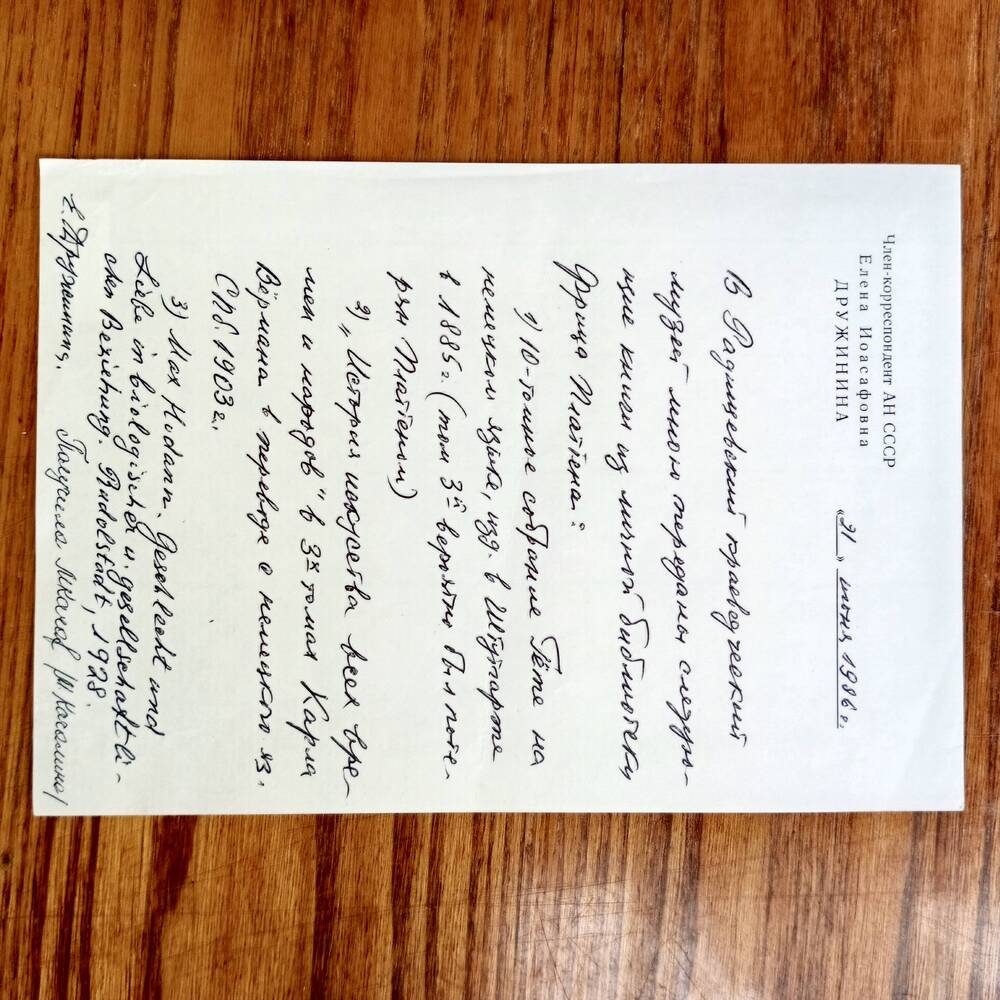 Член-корреспондент АН СССР
Елена Иоасафовна
ДРУЖИНИНА
«21» июня 1986 г.
В Радищевский краеведческий
музей мною переданы следую-
щие книги из личной библиотеки
Фрица Платтена:
1) 10-томное собрание Гёте на
немецком языке, изд. в Штутгарте
в 1885 г. (том 3й вероятно был поте-
рян Платтеном)
2) „История искусства всех вре-
мен и народов" в 3х томах Карла
Вёрмана в переводе с немецкого яз.
СПб. 1903 г.
3) Max Hodann. Geschlecht und
Liebe in biologischer u. gesellschaftli-
chen Beziehung. Rudolstadt, 1928.
Е. Дружинина.
Получила (М. Качалина)